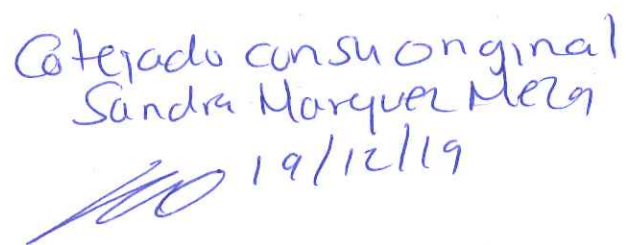 Cotejado con su original
Sandra Marquez Meza
19/12/19